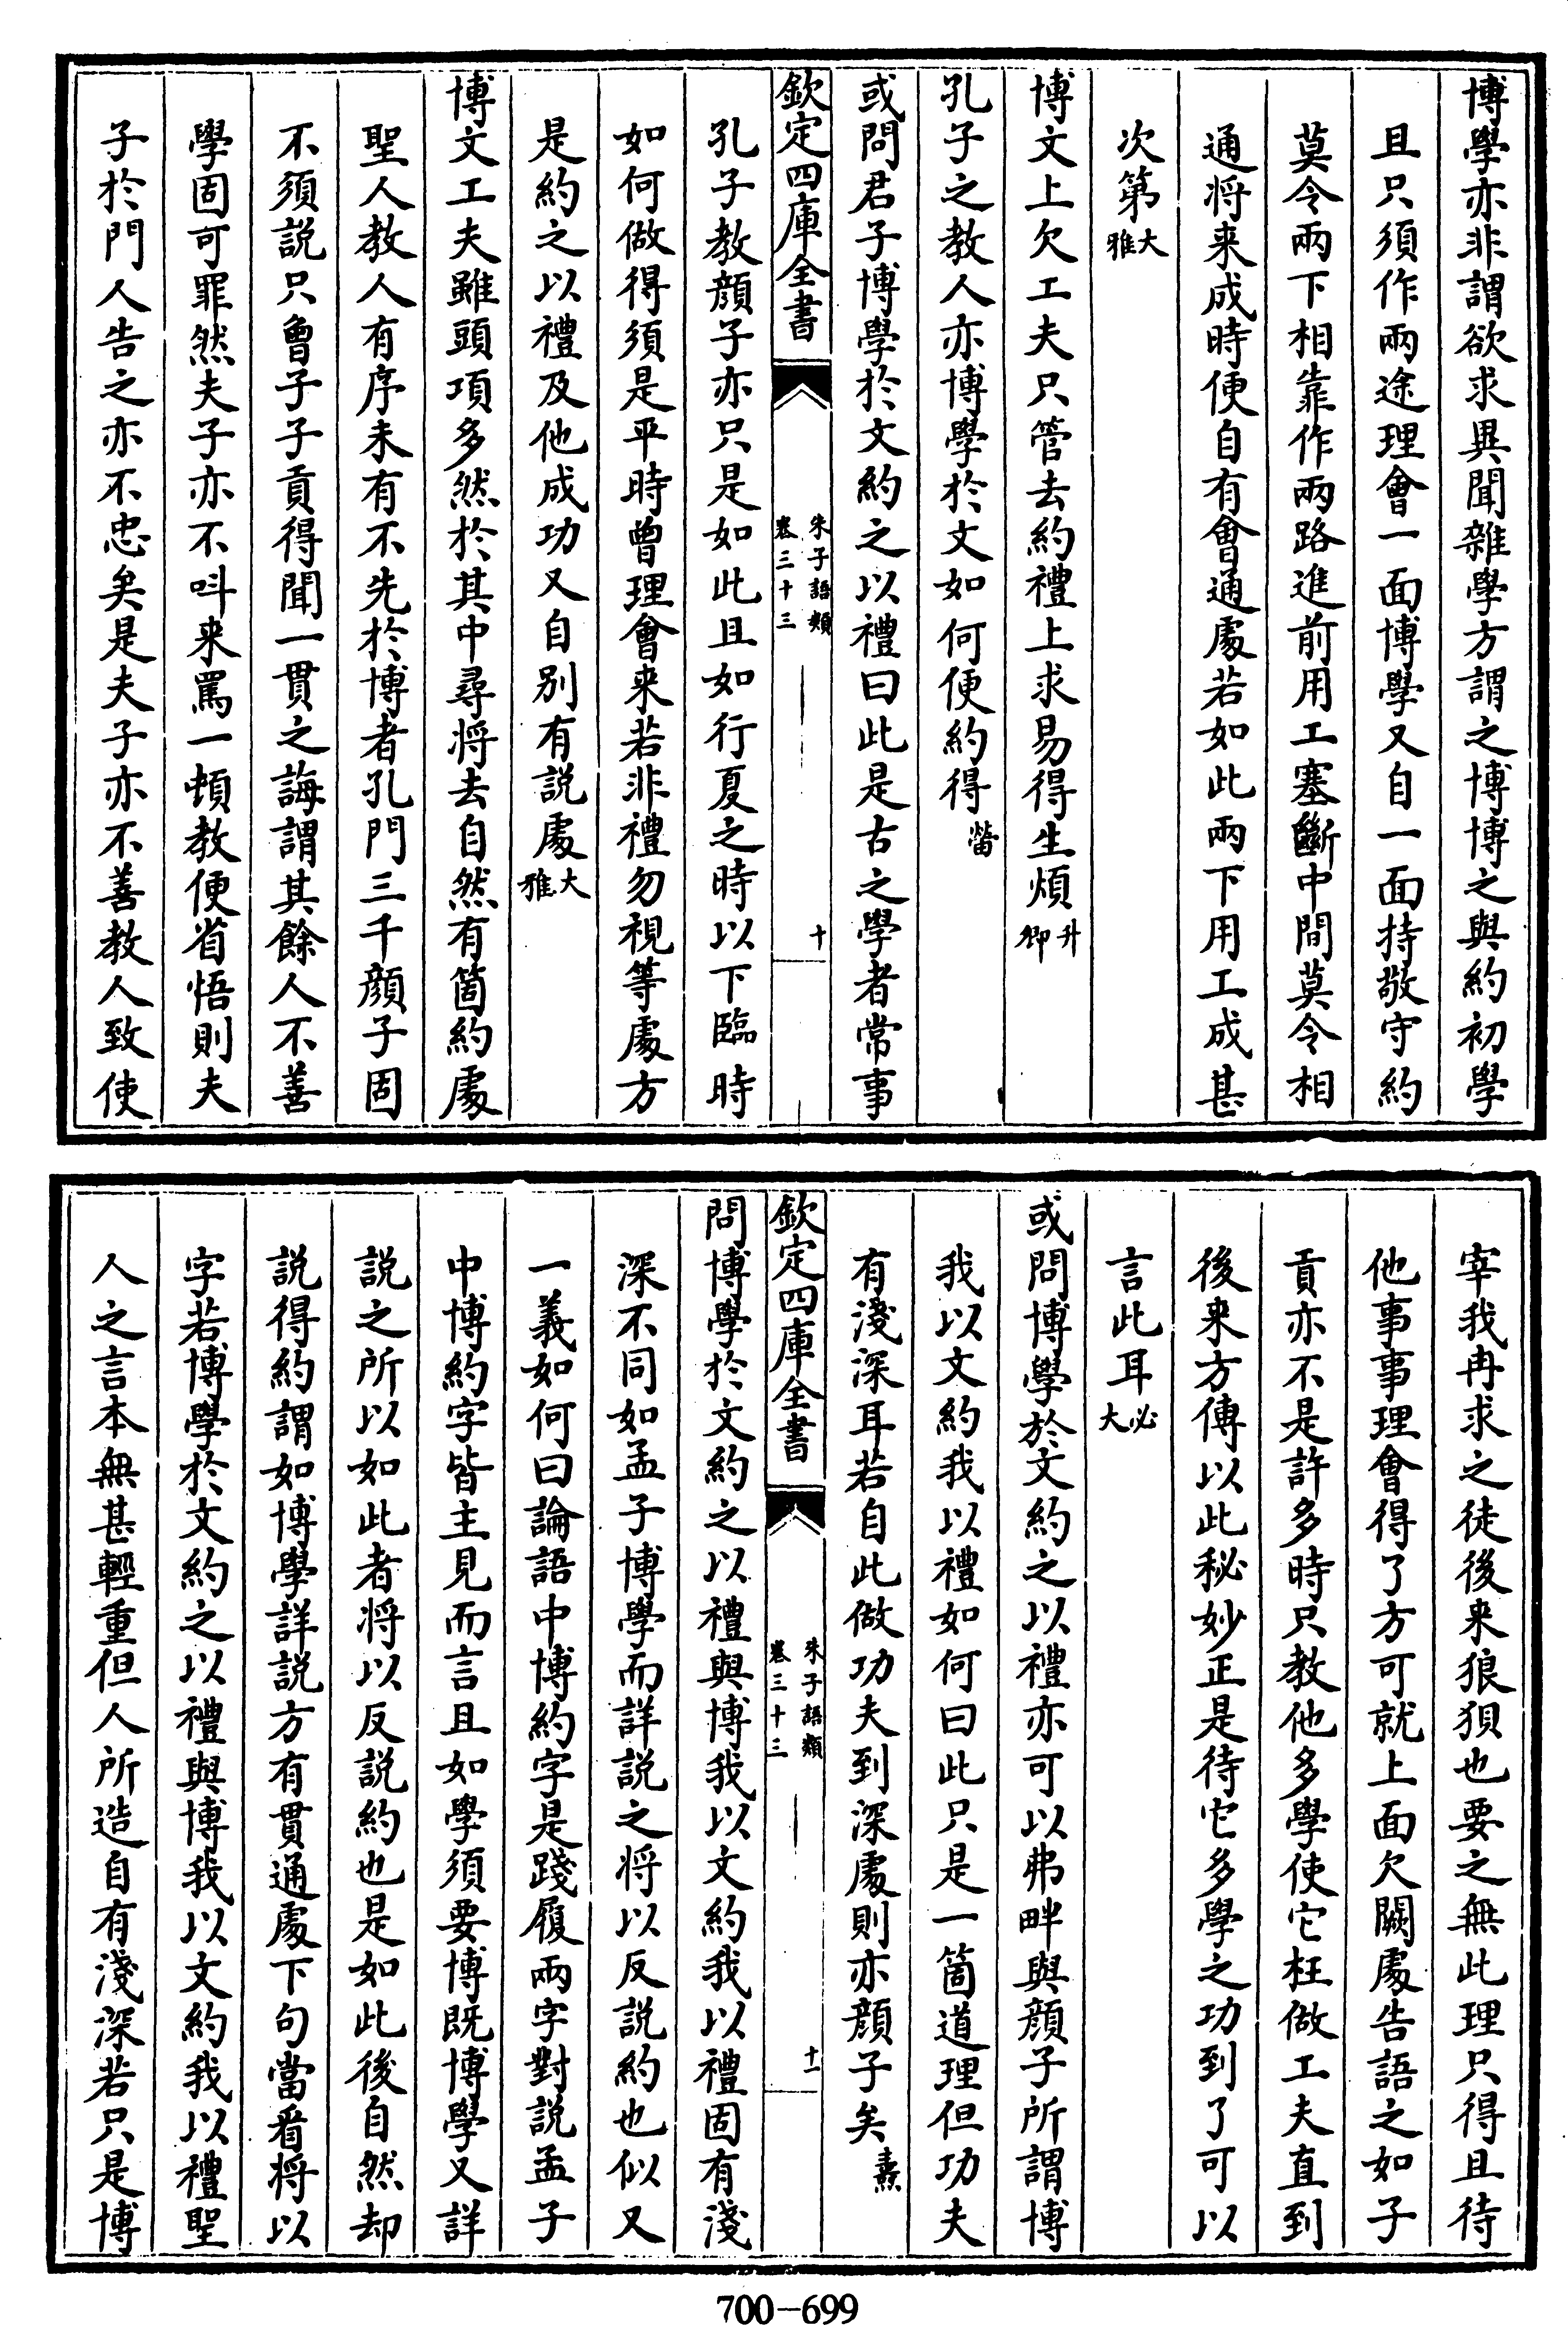 博學亦非謂欲求異聞雜學方謂之博博之與約初學
且只須作兩途理會一面博學又自一面持敬守約
莫令兩下相靠作兩路進前用工塞斷中間莫令相
通将来成時便自有會通處若如此兩下用工成甚
次第大雅
博文上欠工夫只管去約禮上求易得生煩升卿
孔子之教人亦博學於文如何便約得㽦
或問君子博學於文約之以禮曰此是古之學者常事
欽定四庫全書
朱子語類
卷三十三
十
孔子教顔子亦只是如此且如行夏之時以下臨時
如何做得須是平時曽理會来若非禮勿視等處方
是約之以禮及他成功又自别有説處大雅
博文工夫雖頭項多然於其中尋将去自然有箇約處
聖人教人有序未有不先於博者孔門三千顔子固
不須説只曽子子貢得聞一貫之誨謂其餘人不善
學固可罪然夫子亦不呌来罵一頓教便省悟則夫
子於門人告之亦不忠矣是夫子亦不善教人致使
宰我冉求之徒後来狼狽也要之無此理只得且待
他事事理會得了方可就上面欠闕處告語之如子
貢亦不是許多時只教他多學使它枉做工夫直到
後来方傳以此秘妙正是待它多學之功到了可以
言此耳必大
或問博學於文約之以禮亦可以弗畔與顔子所謂博
我以文約我以禮如何曰此只是一箇道理但功夫
有淺深耳若自此做功夫到深處則亦顔子矣燾
欽定四庫全書
朱子語類
卷三十三
十一
問博學於文約之以禮與博我以文約我以禮固有淺
深不同如孟子博學而詳説之将以反説約也似又
一義如何曰論語中博約字是踐履兩字對説孟子
中博約字皆主見而言且如學須要博既博學又詳
説之所以如此者将以反説約也是如此後自然却
説得約謂如博學詳説方有貫通處下句當看将以
字若博學於文約之以禮與博我以文約我以禮聖
人之言本無甚輕重但人所造自有淺深若只是博
700-699